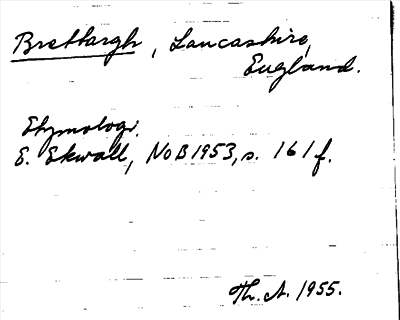 Brettargh, Lancashire,
England.
Etymologi.
E. Ekwall, NoB 1953, s. 161 f.
Th. A. 1955.